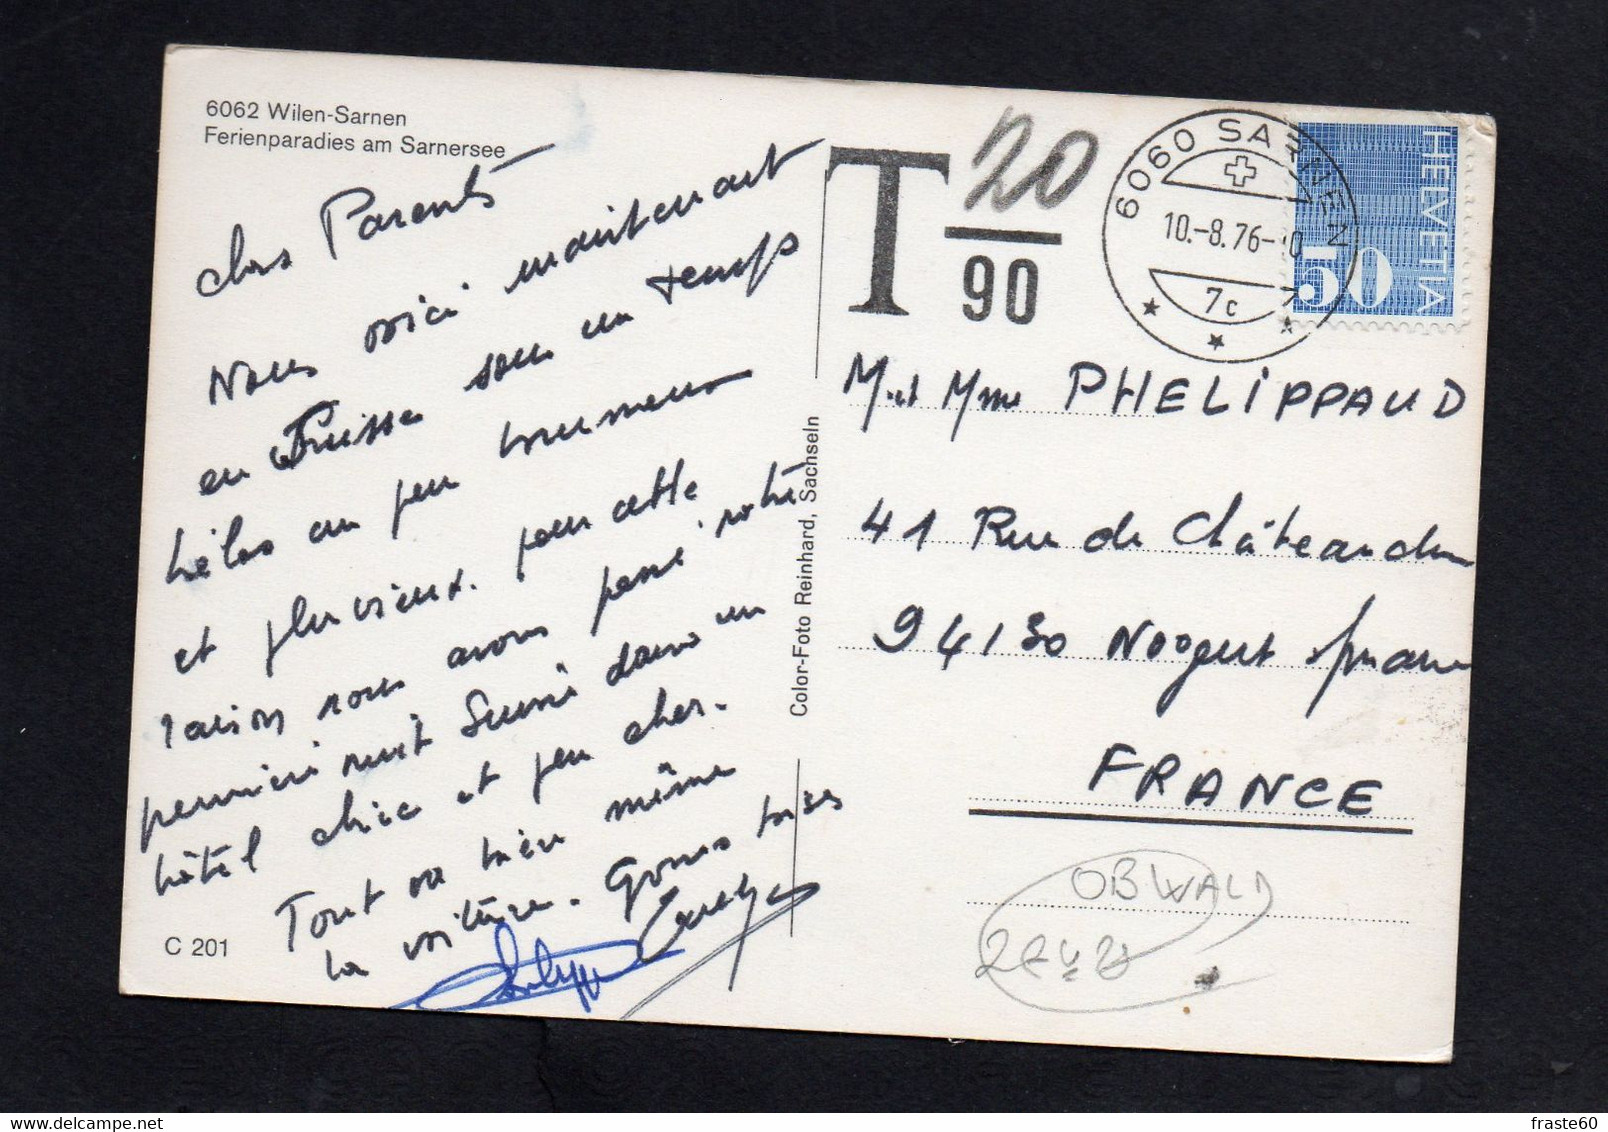 6062 Wilen-Sarnen
Ferienparadies am Sarnersee
chers Parents
Nous voici maintenant
en Suisse sous un temps
hélas un peu brumeux
et pluvieux. pour cette
raison nous avons passé notre
première nuit Suisse dans un
hôtel chic et peu cher.
Tout va bien même
la voiture. Grosses bises
C 201
Color-Foto Reinhard, Sachseln
T 20
90
6060 SARNEN
10.-8.76-
7c
HELVETIA
50
M et Mme PHELIPPAUD
41 Rue de Châteaudun
94130 Noogent s/marne
FRANCE
OBWALD
fraste60